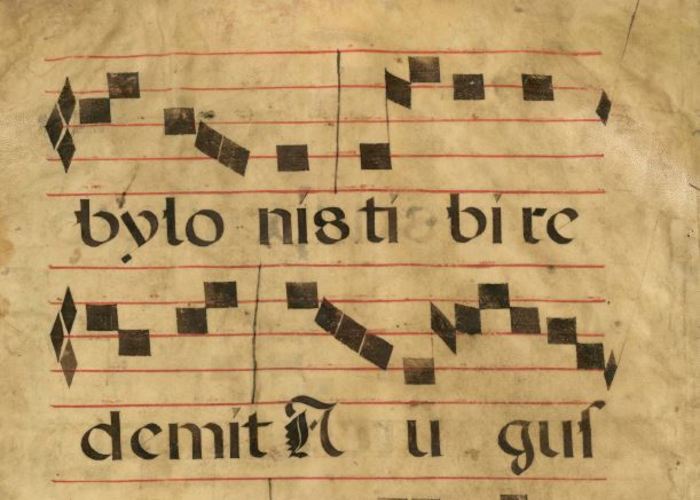 bylo nis ti bi re
demit A u guſ